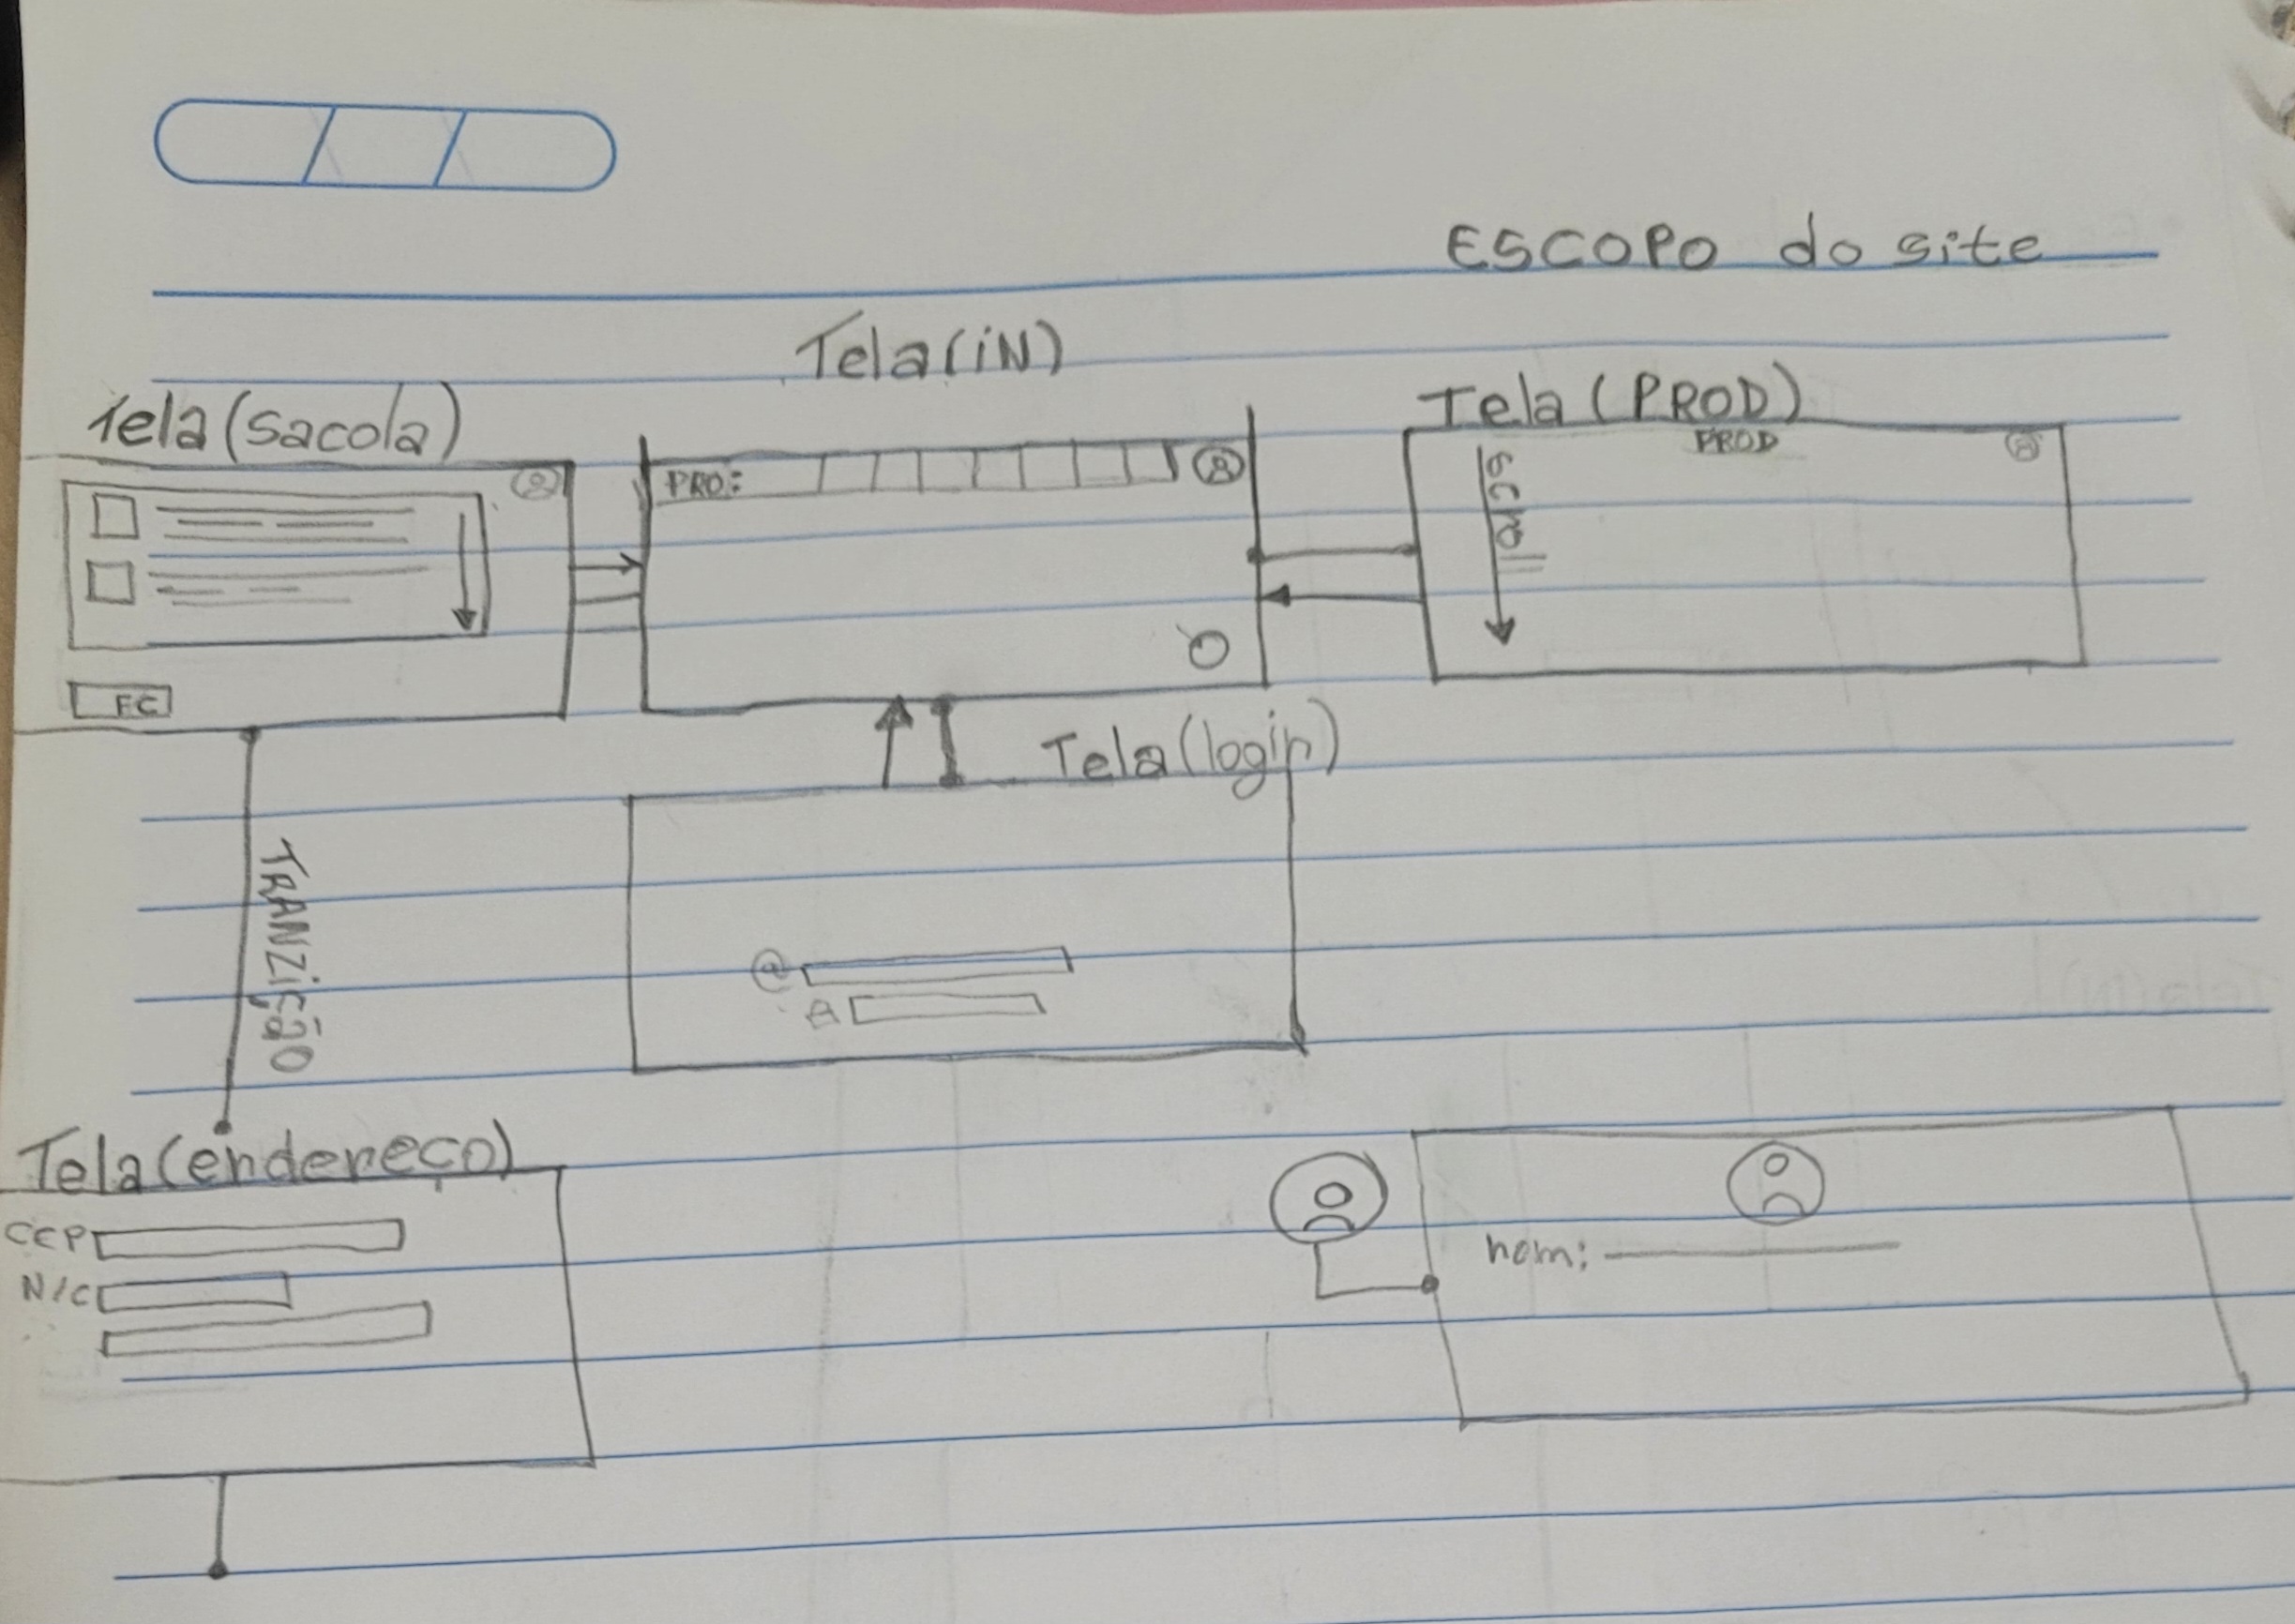 ESCOPO do site
Tela(iN)
Tela(sacola)
Tela(PROD)
PROD
PRO:
scroll
FC
Tela(login)
@
TRANZiÇãO
Tela(endereço)
CEP
N/C
nom: